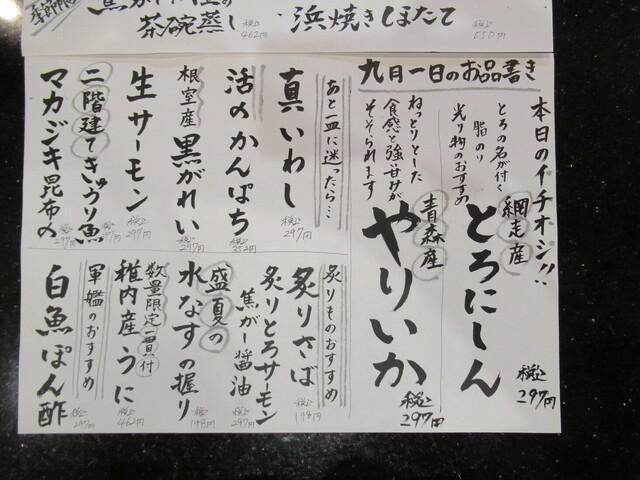 茶碗蒸し
税込
462円
浜焼きほたて
税込
550円
九月一日のお品書き
本日のイチオシ!!
とろの名が付く
脂のり
光り物のおすすめ
網走産
とろにしん
税込
297円
ねっとりとした
食感と強い甘みが
そそられます
青森産
やりいか
税込
297円
あと一皿に迷ったら…
真いわし
税込
297円
活〆かんぱち
税込
352円
根室産
黒がれい
税込
297円
生サーモン
税込
297円
二階建てきゅうり魚
税込
297円
マカジキ昆布〆
税込
297円
炙りものおすすめ
炙りさば
税込
198円
炙りとろサーモン
焦がし醤油
税込
297円
盛夏の
水なすの握り
税込
198円
数量限定一貫付
稚内産うに
税込
462円
軍艦のおすすめ
白魚ぽん酢
税込
297円